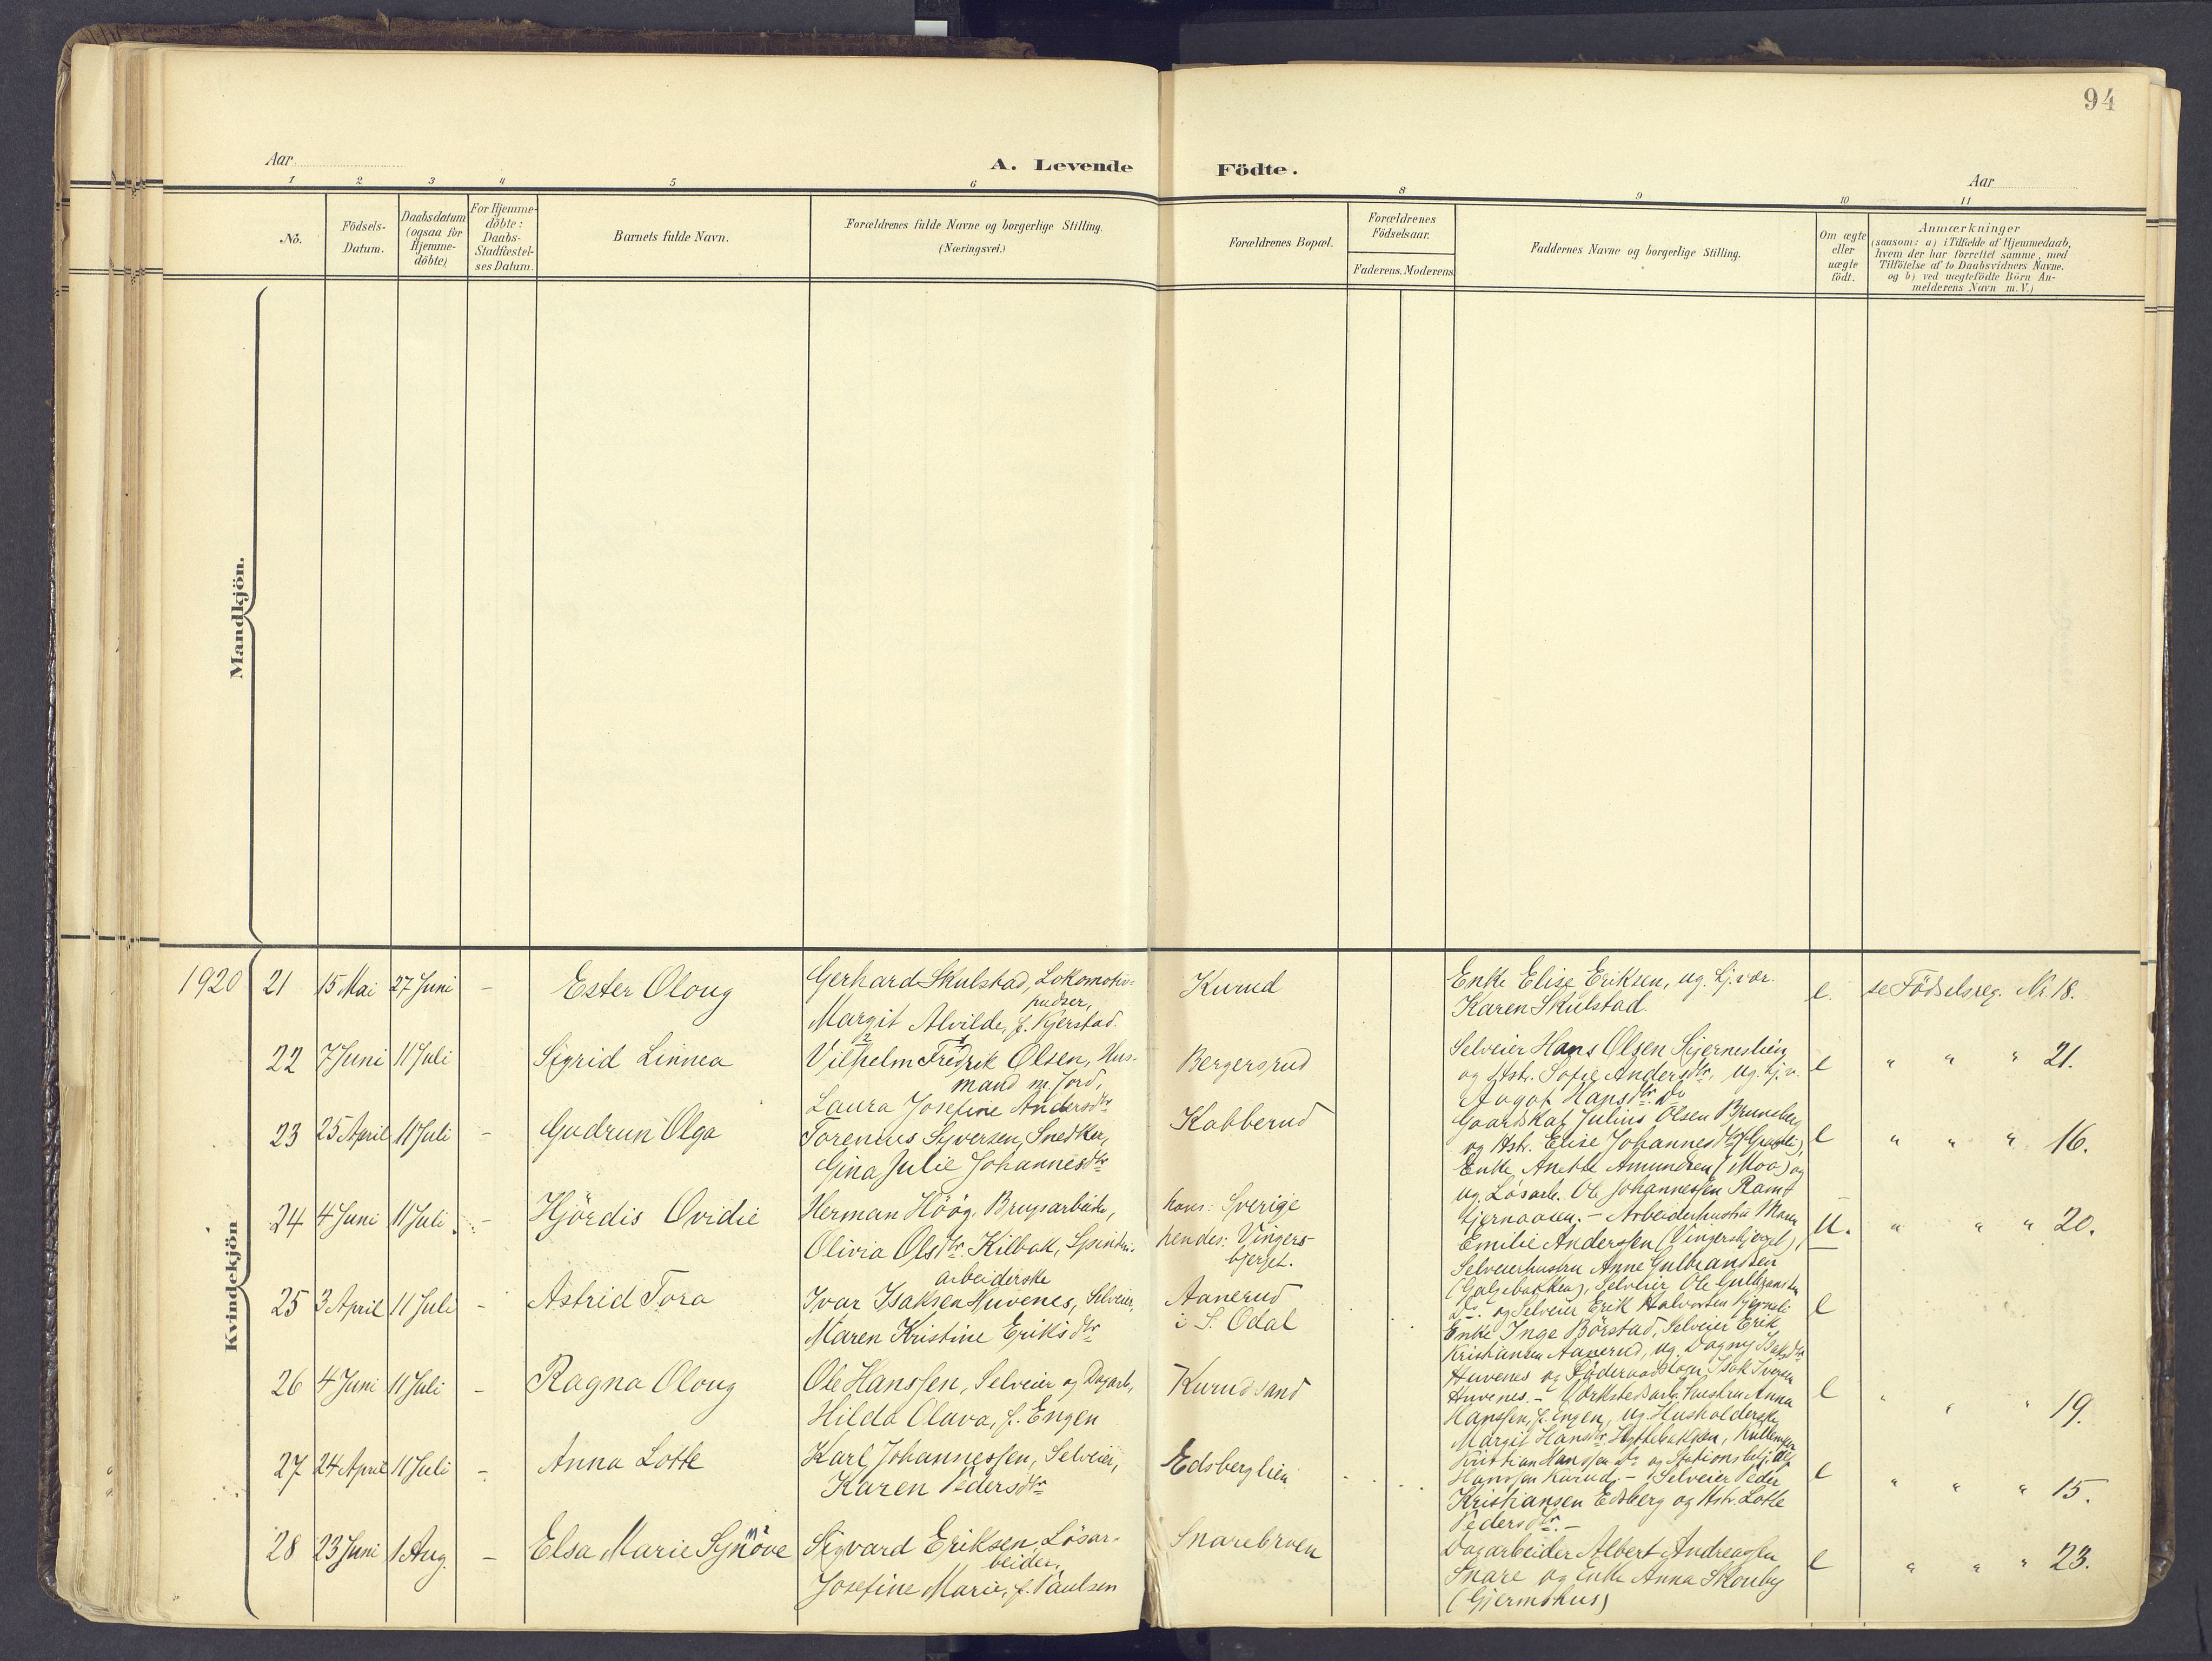 94
Aar
A. Levende Födte.
Aar
1 2 3 4 5 6 8 9 10 11
No.
Födsels-
Datum.
Daabsdatum
(ogsaa för
Hjemme-
döbte)
For Hjemme-
döbte:
Daabs-
Stadfæstel-
ses Datum.
Barnets fulde Navn.
Forældrenes fulde Navne og borgerlige Stilling.
(Næringsvei.)
Forældrenes Bopæl.
Forældrenes
Födselsaar.
Faderens. Moderens
Faddernes Navne og borgerlige Stilling.
Om ægte
eller
uægte
födt.
Anmærkninger
(saasom: a) i Tilfælde af Hjemmedaab,
hvem der har forrettet samme, med
Tilföielse af to Daabsvidners Navne.
og b) ved uægtefödte Börn An-
melderens Navn m.V.)
Mandkjön.
Kvindekjön
1920
21 15 Mai 27 Juni - Ester Oloug
Gerhard Skulstad, Lokomotiv=
pudser,
Margit Alvilde, f. Kjerstad.
Kurud
Enke Elise Eriksen, ug. hj.vær.
Karen Skulstad.
e. se Födselsreg. Nr. 18.
22 7 Juni 11 Juli Sigrid Linnea
2 1
Vilhelm Fredrik Olsen, Hus-
mand m. Jord,
Laura Josefine Andersdtr
Bergersrud
Selveier Hans Olsen Skjerneslien
og Hstr. Sofie Andersdtr, ug. hj.v.
Aagot Hansdtr Do
e " " " 21.
23 25 April 11 Juli - Gudrun Olga
Torenius Syversen, Snedker,
Gina Julie Johannesdtr
Kabberud
Gaardskar Julius Olsen Brunsberg
og Hstr. Elise Johannesdtr
Enke Anette Amundsen (Moa) og
ug. Lösarb. Ole Johannessen Ramt
e " " " 16.
24 4 Juni 11 Juli - Hjördis Ovidie
Herman Höög, Brugsarbeider,
Olivia Olsdtr. Kilbak,
arbeiderske
hans: Sverige
hendes: Vingers-
bjerget.
Kjernaasen. - Arbeiderhustru Maren
Emilie Anderssen (Vingersbjerget),
Selveierhustru Anne Gulbrandsen
(Galgebakken), Selveier Ole Gulbrandsen
u. " " " 20.
25 3 April 11 Juli - Astrid Tora
Ivar Isaksen Huvenes, Selveier,
Maren Kristine Eriksdtr
Aanerud
i S. Odal
Do. og Selveier Erik Halvorsen Kjernsli
Enke Inge Börstad, Selveier Erik
Kristiansen Aanerud, ug. Dagny Isaksdtr
Huvenes og Föderaadsmand Isak Iversen
e
26 4 Juni 11 Juli - Ragna Oloug
Ole Hanssen, Selveier og Dagarb,
Hilda Olava, f. Engen
Kurudsand
Huvenes. - Værkstedsarb. hustru Anna
Hanssen, f. Engen, ug. Husholderske
Margit Hansdtr Hyttebakken,
Kristian Hanssen Do og Stationsbetj. Ole
e " " " 19.
27 24 April 11 Juli - Anna Lotte
Karl Johannessen, Selveier,
Karen Pedersdtr
Edsberglien
Hanssen Kurud. - Selveier Peder
Kristiansen Edsberg og Hstr. Lotte
Pedersdtr. -
e " " " 15.
28 23 Juni 1 Aug. - Elsa Marie Synöve
Sigvard Eriksen, Lösar-
beider,
Josefine Marie, f. Paulsen
Snarebroen
Dagarbeider Albert Andreassen
Snare og Enke Anna Skouby
(Gjermshus)
e " " " 23.